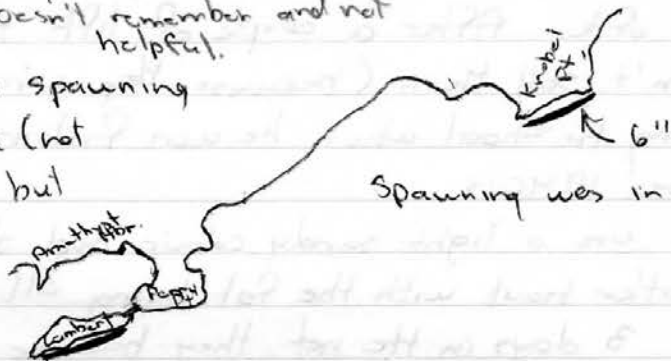 oesn't remember and not
helpful.
spawning
(not
but
Knobel
Pt.
6"
Spawning was in
Amethyst
Hbr.
Lambert